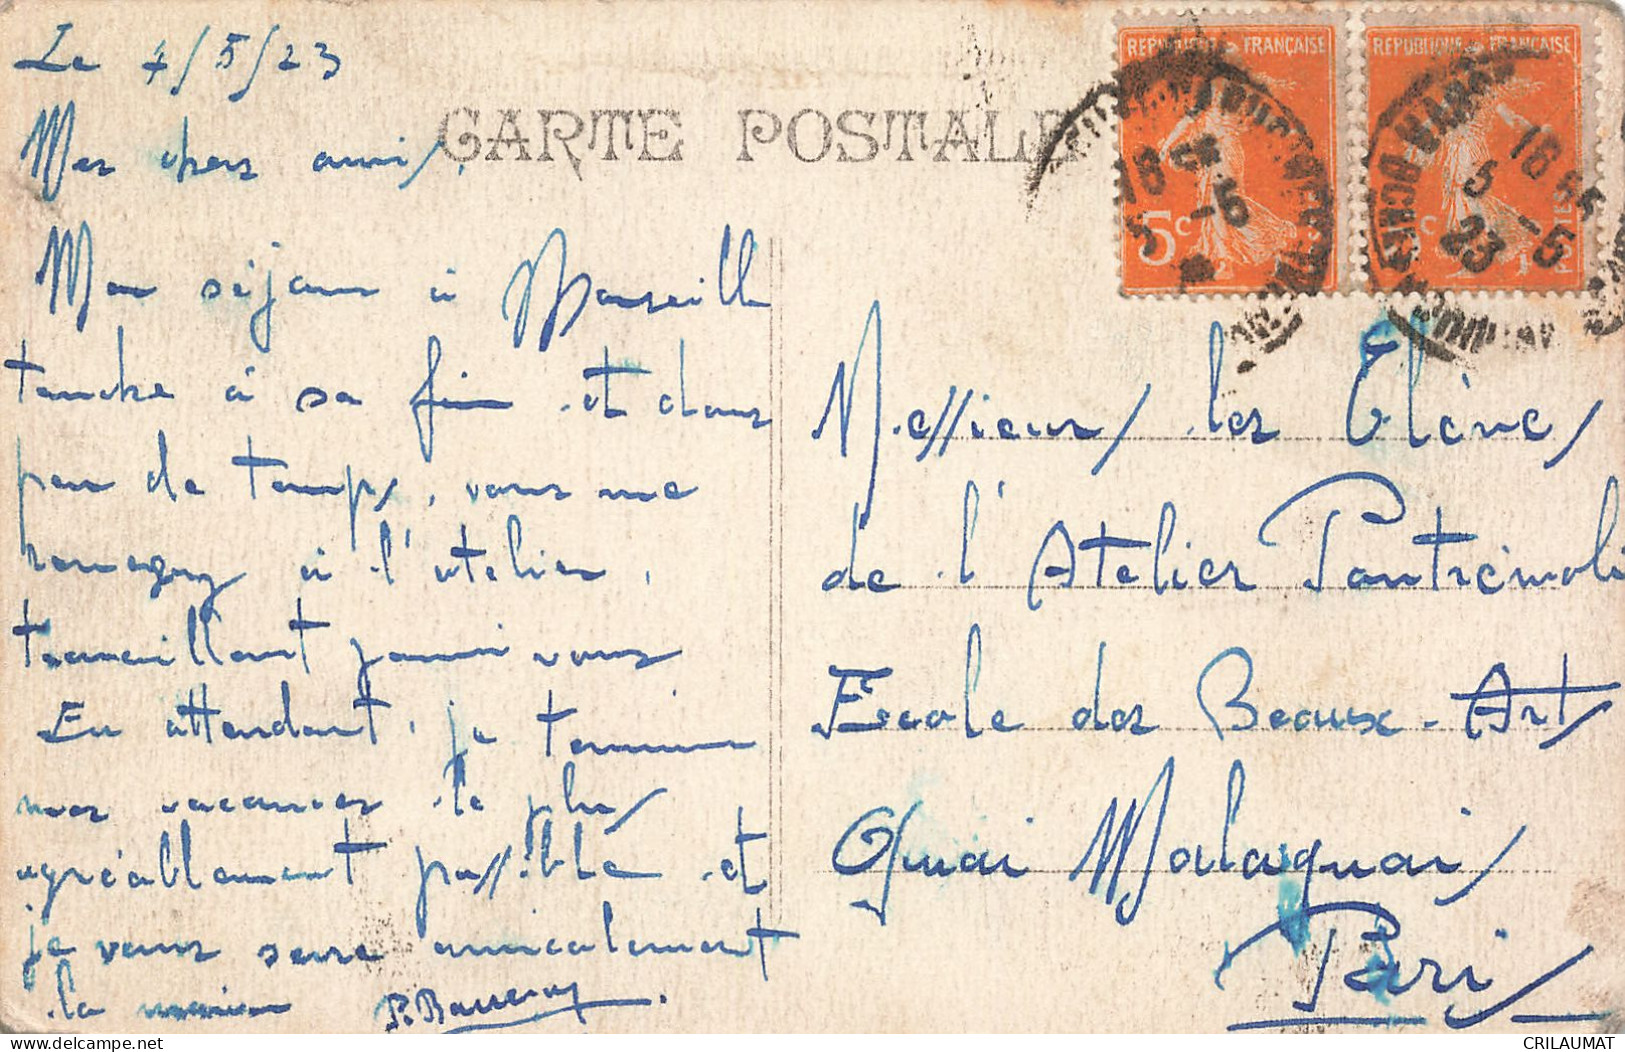 Le 4/5/23
CARTE POSTALE
Mes chers amis,
Mon séjour à Marseille
touche à sa fin et dans
peu de temps, vous me
à l'atelier,
travaillant parmi vous
En attendant, je termine
mes vacances le plus
agréablement possible et
je vous serre amicalement
la main P. Barre
REPUBLIQUE FRANÇAISE
5c
REPUBLIQUE FRANÇAISE
POSTES
16
5 -5
23
Messieurs les Elèves
de l'Atelier Pontrémoli
Ecole des Beaux-Arts
Quai Malaquais
Paris
CRILAUMAT